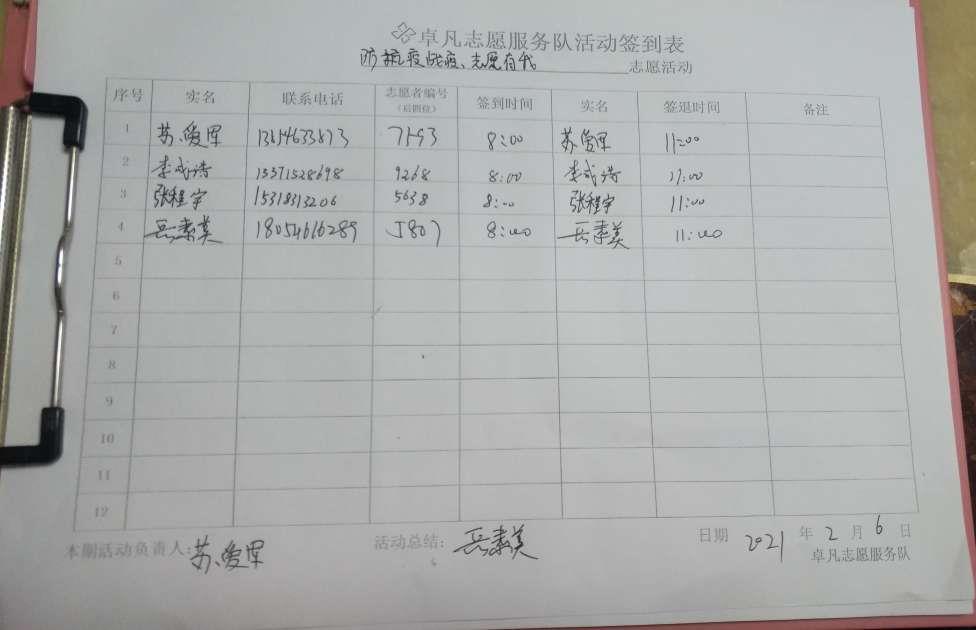 卓凡志愿服务队活动签到表
防抗疫战疫、志愿有我 志愿活动
序号 实名 联系电话 志愿者编号（后四位） 签到时间 实名 签退时间 备注
1 苏爱军 7593 8:00 苏爱军 11:00
2 李成诗 15371528698 9268 8:00 李成诗 17:00
3 张程宇 15318313206 5638 8:00 张程宇 11:00
4 岳素美 18054616289 5807 8:00 岳素美 11:00
5
6
7
8
9
10
11
12
本期活动负责人: 苏爱军 活动总结: 岳素美 日期 2021 年 2 月 6 日
卓凡志愿服务队